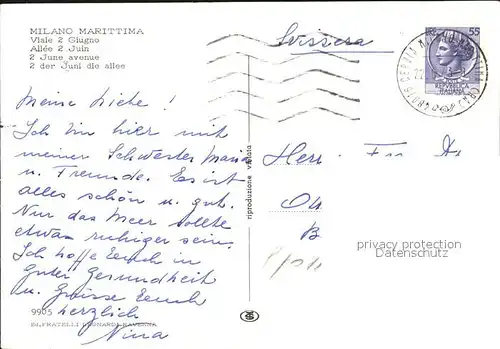 MILANO MARITTIMA
Viale 2 Giugno
Allée 2 Juin
2 June avenue
2 der Juni die allee
Svissera
55
Meine Liebe!
Ich bin hier mit
meiner Schwester Maria
u. Freunde. Es ist
alles schön u. gut.
Nur das Meer sollte
etwas ruhiger sein.
Ich hoffe Eeuch in
guter Gesundheit
u. Grüsse Eeuch
herzlich
Nina
9905
Ed. FRATELLI GENNARI-RAVENNA
riproduzione vietata
Herr
privacy protection
Datenschutz